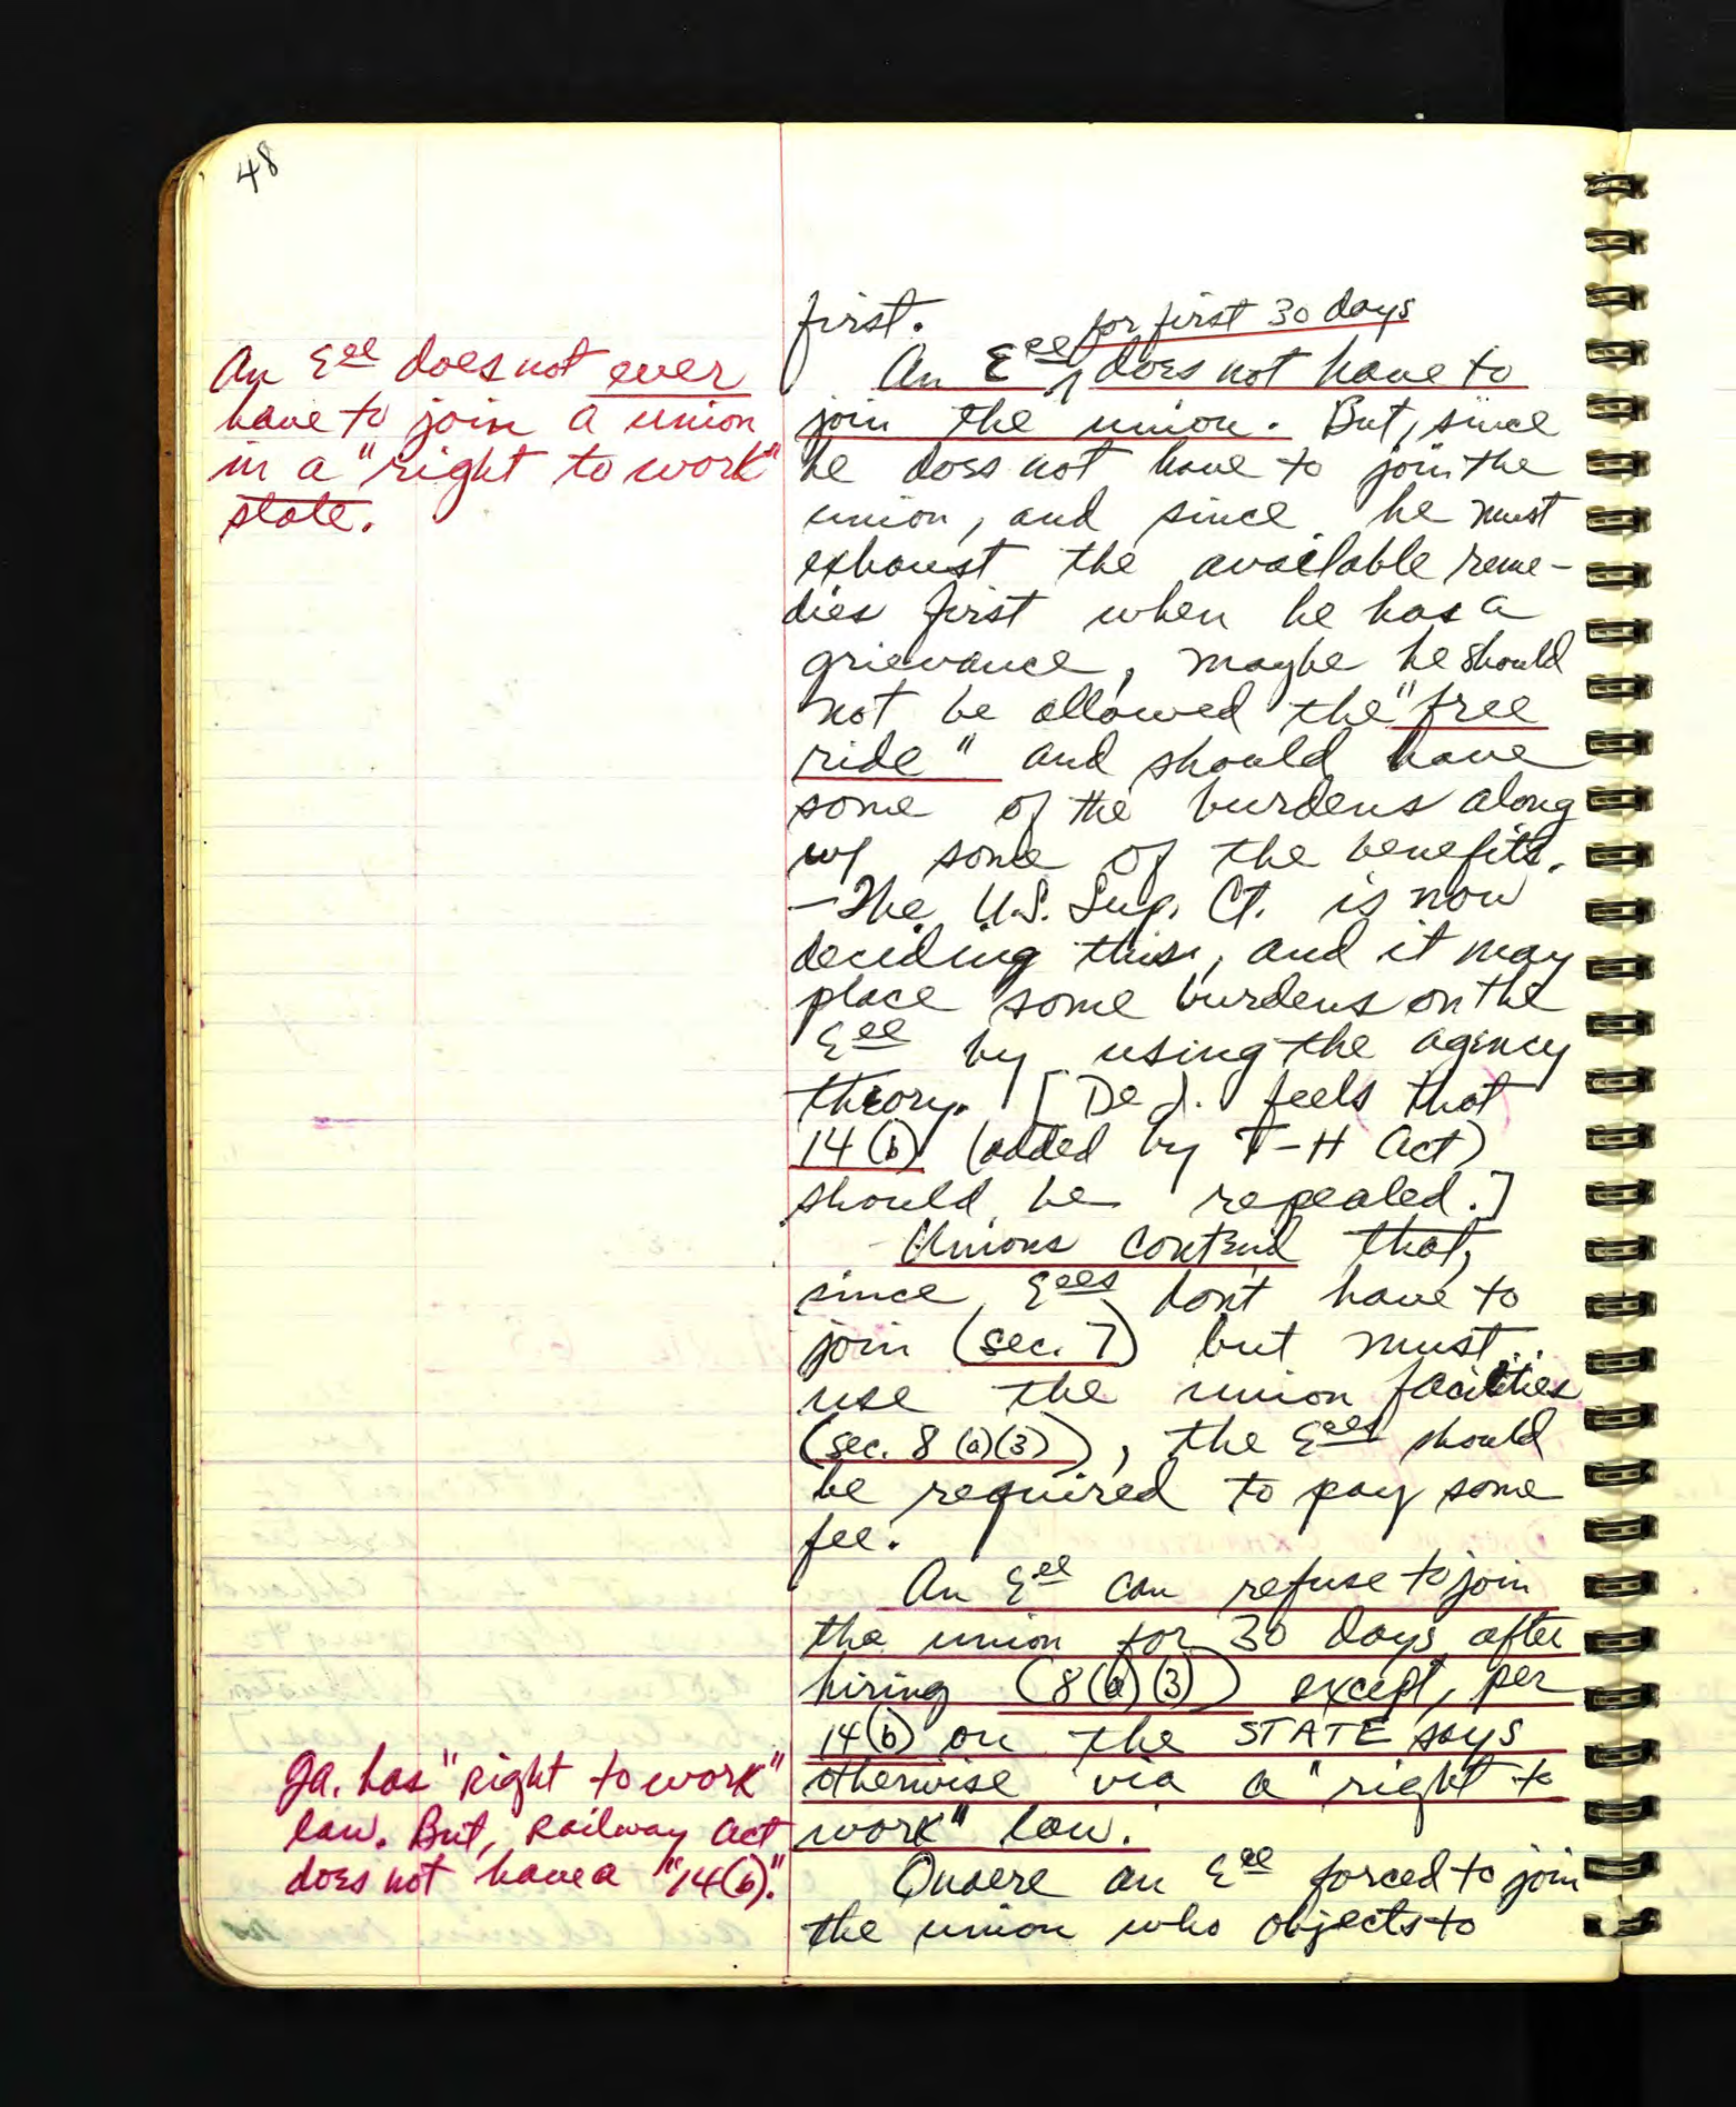 48
An Eee does not ever
have to join a union
in a "right to work"
state.
first.
for first 30 days
An Eee ^ does not have to
join the union. But, since
he does not have to join the
union, and since he must
exhaust the available reme-
dies first when he has a
grievance, maybe he should
not be allowed the "free
ride" and should have
some of the burdens along
w/ some of the benefits.
- The U.S. Sup. Ct. is now
deciding this, and it may
place some burdens on the
Eee by using the agency
theory. [De J. feels that
14(b) (added by T-H Act)
should be repealed.]
- Unions contend that,
since Eees don't have to
join (sec. 7) but must
use the union facilities
(sec. 8(a)(3)), the Eees should
be required to pay some
fee.
An Eee can refuse to join
the union for 30 days after
hiring (8(a)(3)) except, per
14(b) on the STATE says
otherwise via a "right to
work" law.
Ga. has "right to work"
law. But, Railway Act
does not have a "14(b)."
Quaere an Eee forced to join
the union who objects to